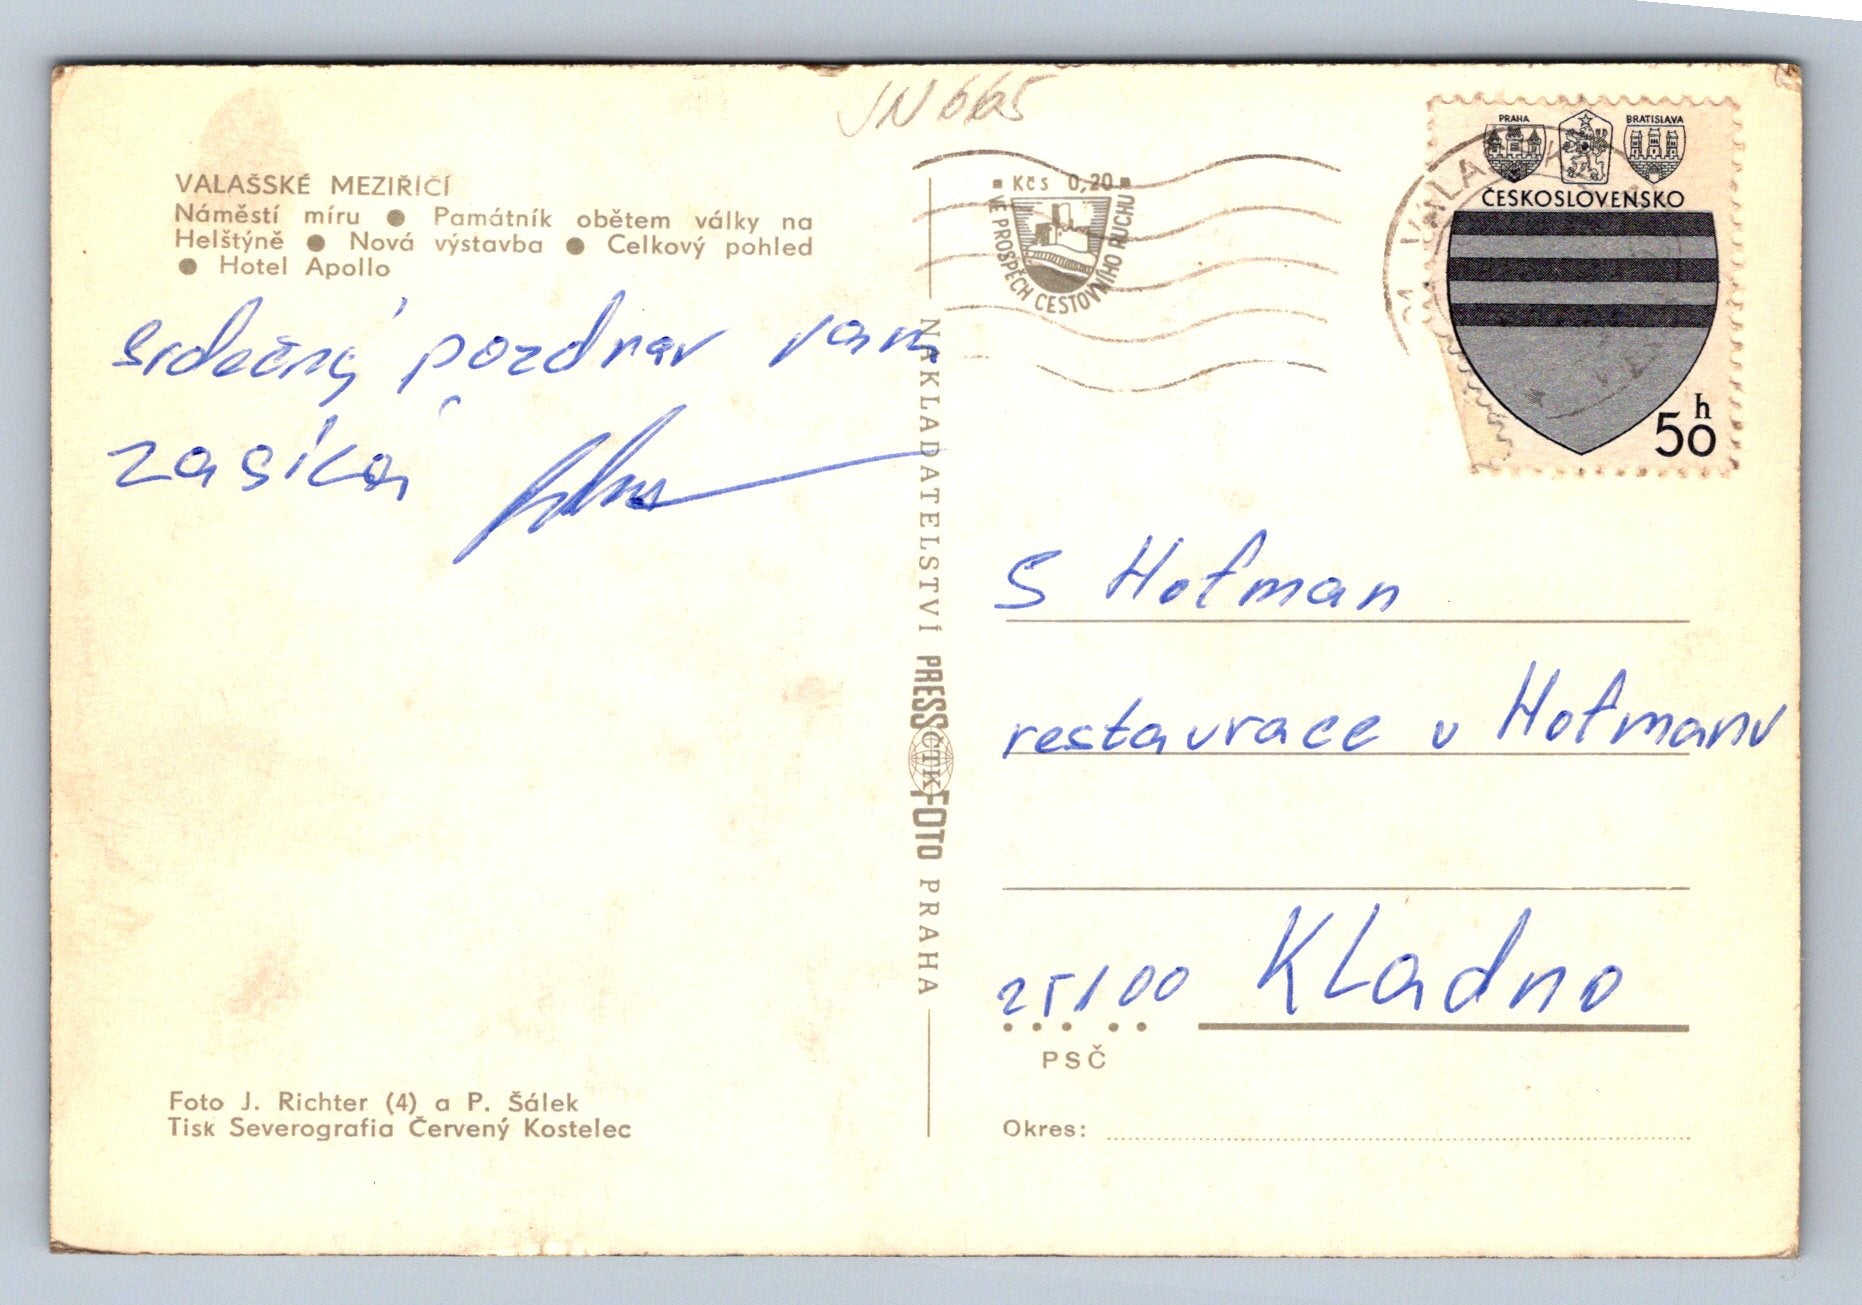 JN665
VALAŠSKÉ MEZIŘÍČÍ
Náměstí míru ● Památník obětem války na
Helštýně ● Nová výstavba ● Celkový pohled
● Hotel Apollo
srdečný pozdrav vam
zasíká
Foto J. Richter (4) a P. Šálek
Tisk Severografia Červený Kostelec
NAKLADATELSTVÍ PRESSFOTO PRAHA
ČTK
Kčs 0,20
VE PROSPĚCH CESTOVNÍHO RUCHU
PRAHA
BRATISLAVA
ČESKOSLOVENSKO
50 h
S Hofman
restaurace u Hofmanu
25100 Kladno
PSČ
Okres: